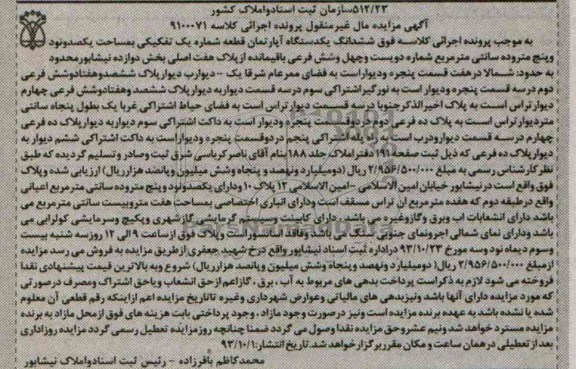 ۵۱۲/۲۳سازمان ثبت اسنادواملاک کشور
آگهی مزایده مال غیرمنقول پرونده اجرائی کلاسه ۹۱۰۰۰۷۱
به موجب پرونده اجرائی کلاسه فوق ششدانگ یکدستگاه آپارتمان قطعه شماره یک تفکیکی بمساحت یکصدونود
وپنج متروده سانتی مترمربع شماره دویست وچهل وشش فرعی باقیمانده ازپلاک هفت اصلی بخش دوازده نیشابورمحدود
به حدود: شمالا درهفت قسمت پنجره ودیواراست به فضای ممرعام شرقا یک – دیوارب دیوارپلاک ششصدوهفتادوشش فرعی
دوم درسه قسمت پنجره ودیوار است به نورگیراشتراکی سوم درسه قسمت دیواربه دیوارپلاک ششصد وهفتادوشش فرعی چهارم
دیوارتراس است به پلاک اخیرالذکرجنوبا درسه قسمت دیوارتراس است به فضای حیاط اشتراکی غربا یک بطول پنجاه سانتی
متردیوارتراس است به پلاک ده فرعی دوم دردوقسمت پنجره ودیوار است به داکت اشتراکی سوم دیواربه دیوارپلاک ده فرعی
چهارم درسه قسمت دیوارودرب است به راه پله اشتراکی پنجم دردوقسمت پنجره ودیواراست به داکت اشتراکی ششم دیوار به
دیوارپلاک ده فرعی که ذیل ثبت صفحه۱۹۱ دفتراملاک جلد ۱۸۸ بنام آقای ناصر کرباسی شرق ثبت وصادر و تسلیم گردیده که طبق
نظرکارشناس رسمی به مبلغ ۲/۹۵۶/۵۰۰/۰۰۰ ریال (دومیلیاردونهصد و پنجاه وشش میلیون وپانصد هزارریال) ارزیابی شده وپلاک
فوق واقع است درنیشابور خیابان امین الاسلامی –امین الاسلامی ۱۲ پلاک ۱۰ ودارای یکصدونود وپنج متروده سانتی مترمربع اعیانی
واقع درطبقه دوم که هفده مترمربع ان تراس مسقف است ودارای انباری اختصاصی بمساحت هفت متروبیست سانتی مترمربع می
باشد دارای انشعابات اب وبرق وگازوغیره می باشد. دارای کابینت وسیستم گرمایشی گازشهری وپکیج وسرمایشی کولرابی می
باشد ودارای نمای شمالی اجرونمای جنوبی سنگ می باشد وفاقد اسانسوراست وپلاک فوق ازساعت ۹ الی ۱۲ روزسه شنبه بیست
وسوم دیماه نود وسه مورخ ۹۳/۱۰/۲۳ دراداره ثبت اسناد نیشابور واقع درخ شهید جعفری ازطریق مزایده به فروش می رسد مزایده
ازمبلغ ۲/۹۵۶/۵۰۰/۰۰۰ ریال( دومیلیارد ونهصد وپنجاه وشش میلیون وپانصد هزارریال) شروع وبه بالاترین قیمت پیشنهادی نقدا
فروخته می شود لازم به ذکراست پرداخت بدهی های مربوط به آب ، برق ، گازاعم ازحق انشعاب ویاحق اشتراک ومصرف درصورتی
که مورد مزایده دارای آنها باشد ونیزبدهی های مالیاتی وعوارض شهرداری وغیره تاتاریخ مزایده اعم ازاینکه رقم قطعی آن معلوم
شده یا نشده باشد به عهده برنده مزایده است ونیز درصورت وجود مازاد ، وجود پرداختی بابت هزینه های فوق ازمحل مازاد به برنده
مزایده مسترد خواهد شد ونیم عشروحق مزایده نقدا وصول می گردد ضمنا چنانچه روزمزایده تعطیل رسمی گردد مزایده روزاداری
بعد ازتعطیلی درهمان ساعت و مکان مقرربرگزارخواهد شد. تاریخ انتشار: ۹۳/۱۰/۱
محمدکاظم باقرزاده – رئیس ثبت اسنادواملاک نیشابور